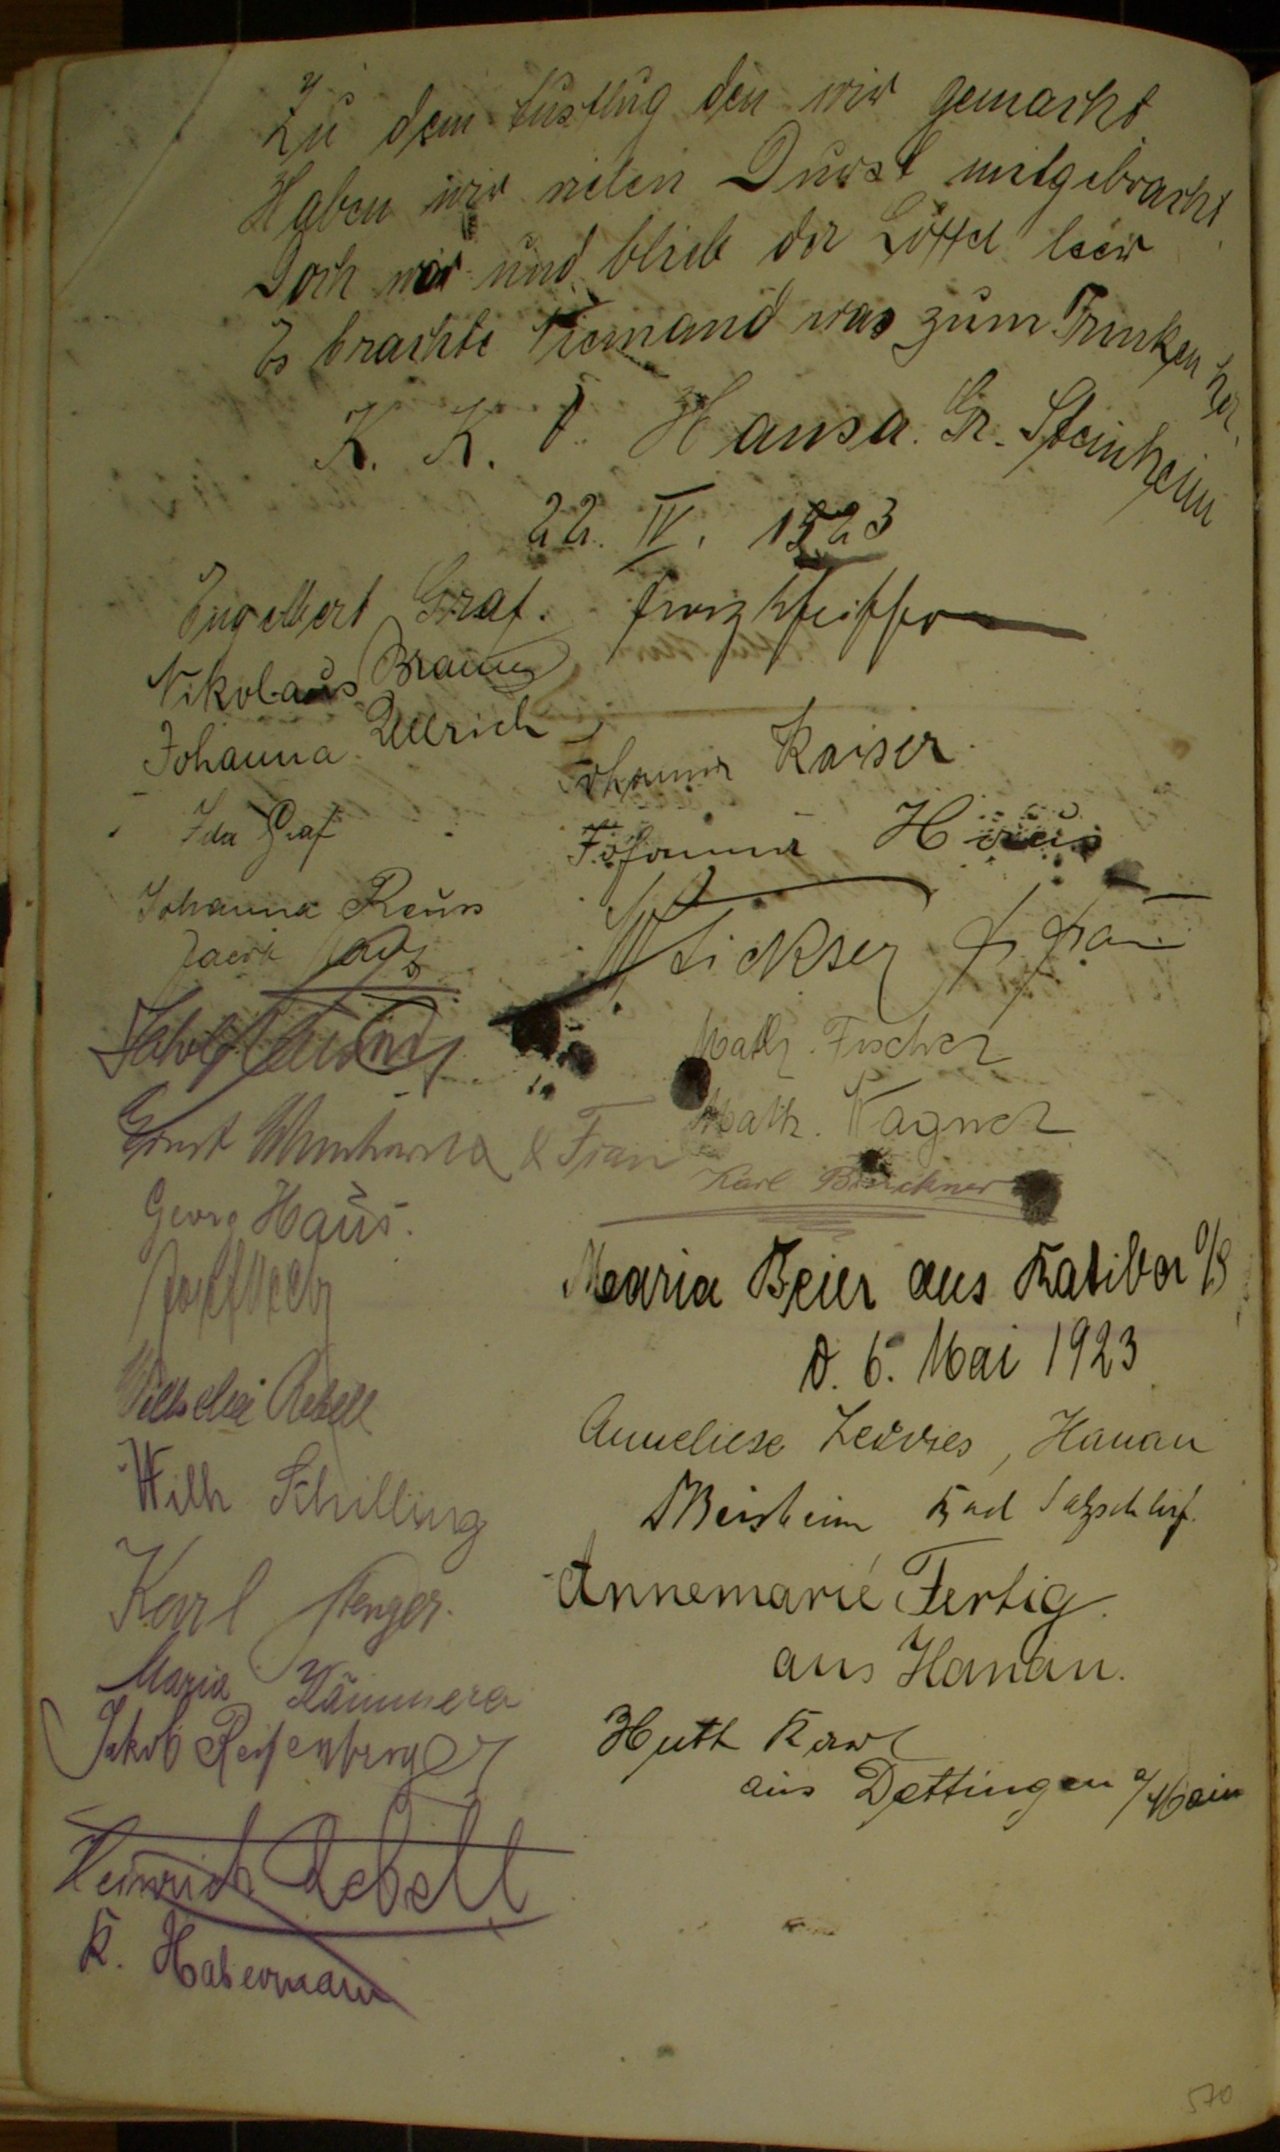 Zu dem Ausflug den wir gemacht
Haben wir vielen Durst mitgebracht.
Doch wir und blieb der Löffel leer
Es brachte Niemand was zum Trinken her.
K. K. V. Hansa. Gr. Steinheim
22. IV. 1923
Engelbert Graf.
Nikolaus Braun
Johanna Ullrich
Ida Graf
Johanna Reuss
Ernst & Frau
Georg Haus.
Josef
Rebell
Wilh Schilling
Karl Stenger.
Maria Kämmerer
Jakob Reifenberger
Heinrich Rebell
K. Habermann
Franz Pfeiffer
Johanna Kaiser.
Johanna
& Frau
Math. Fischer
Math. Wagner
Karl Brückner
Maria Beier aus Ratibor O/S
d. 6. Mai 1923
Anneliese, Hanau
Bad Salzschlirf.
Annemarie Fertig.
aus Hanau.
Huth Karl
aus Dettingen a/Main
570